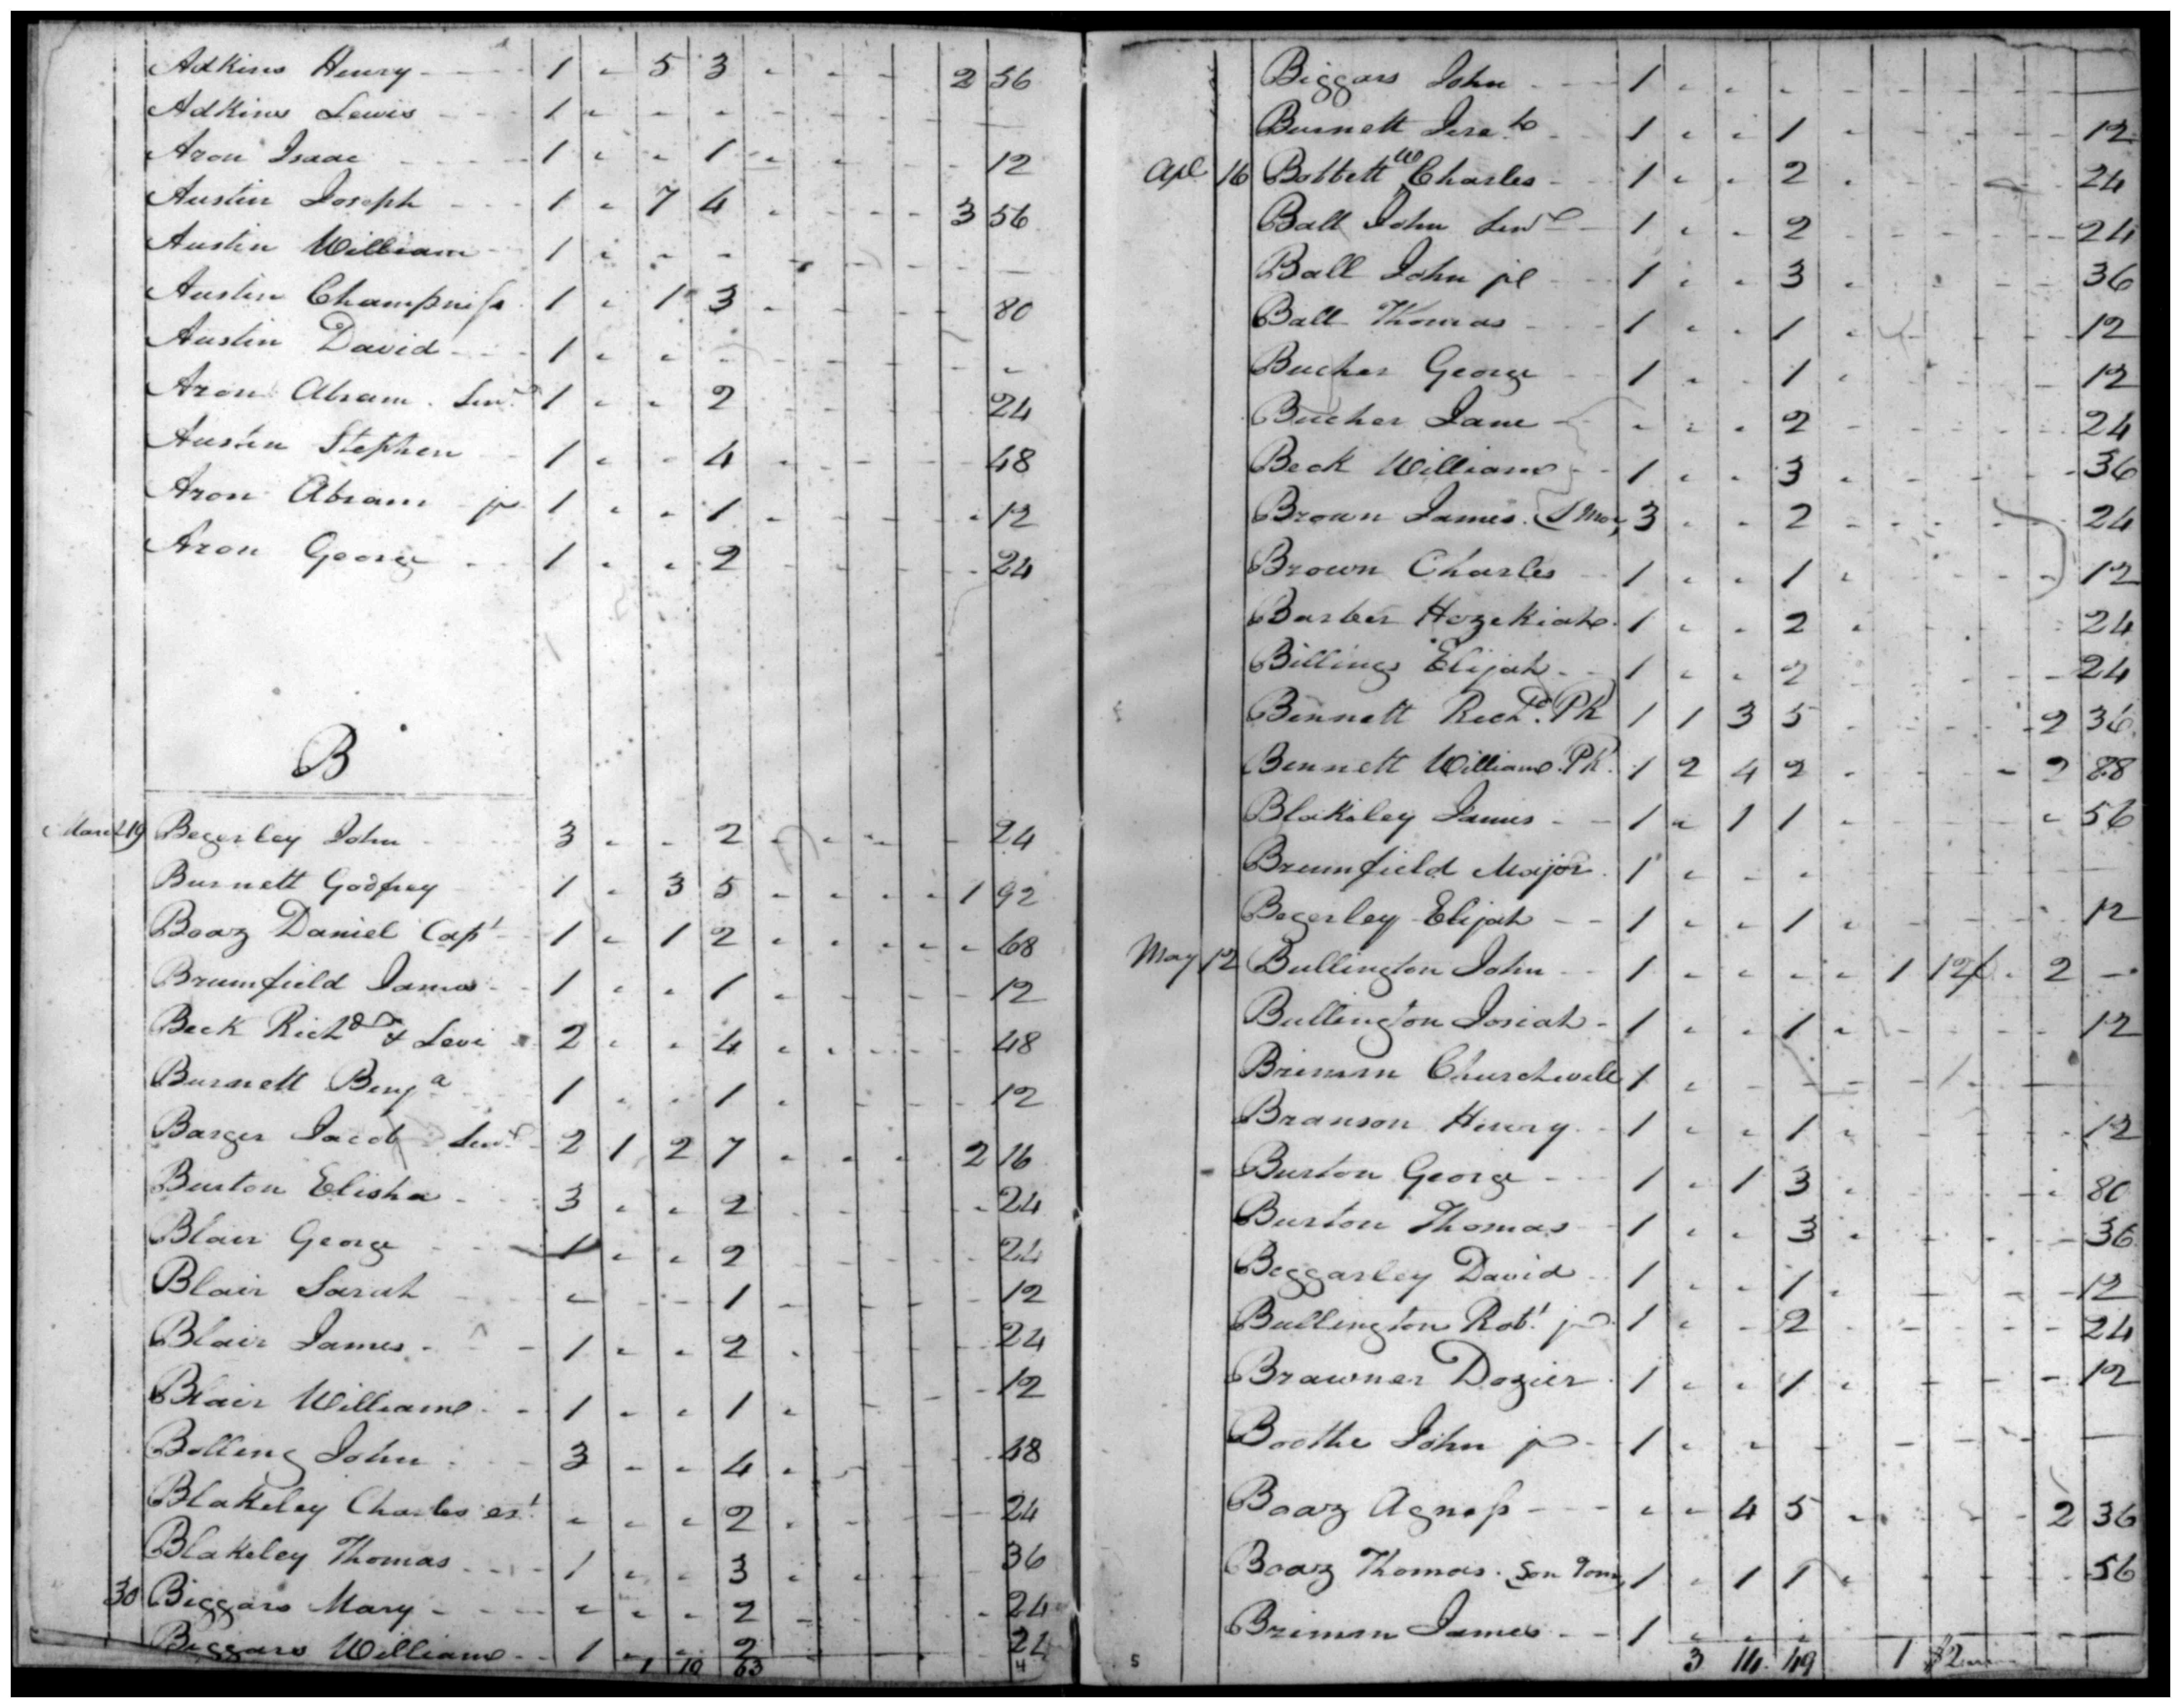 Adkins Henry - 1 - 5 3 - - - 2 56
Adkins Lewis - 1 - - - - - - - -
Aron Isaac - 1 - - 1 - - - - 12
Austin Joseph - 1 - 7 4 - - - 3 56
Austin William 1 - - - - - - - -
Austin Champness 1 - 1 3 - - - - 80
Austin David - 1 - - - - - - - -
Aron Abram Senr 1 - - 2 - - - - 24
Austin Stephen 1 - - 4 - - - - 48
Aron Abram jr 1 - - 1 - - - - 12
Aron George - 1 - - 2 - - - - 24
B
March 19 Begerley John 3 - - 2 - - - - 24
Burnett Godfrey 1 - 3 5 - - - 1 92
Boaz Daniel Capt 1 - 1 2 - - - - 68
Brumfield James 1 - - 1 - - - - 12
Beck Richd & Levi 2 - - 4 - - - - 48
Burnett Benja 1 - - 1 - - - - 12
Barger Jacob Senr 2 1 2 7 - - - 2 16
Burton Elisha - 3 - - 2 - - - - 24
Blair George - 1 - - 2 - - - - 24
Blair Sarah - - - 1 - - - - 12
Blair James - 1 - - 2 - - - - 24
Blair William - 1 - - 1 - - - - 12
Bolling John - 3 - - 4 - - - - 48
Blakeley Charles est - - - 2 - - - - 24
Blakeley Thomas - 1 - - 3 - - - - 36
30 Biggars Mary - - - - 2 - - - - 24
Biggars William - 1 - - 2 24
1 10 63 4
Biggars John - 1 - - - - - - - -
Burnett Jereh 1 - - 1 - - - - 12
Apl 16 Babbett W Charles - 1 - - 2 - - - - 24
Ball John Senr - 1 - - 2 - - - - 24
Ball John jr - 1 - - 3 - - - - 36
Ball Thomas - 1 - - 1 - - - - 12
Bucher George 1 - - 1 - - - - 12
Bucher Jane - - - - 2 - - - - 24
Beck William - 1 - - 3 - - - - 36
Brown James 3 - - 2 - - - - 24
Brown Charles 1 - - 1 - - - - 12
Barber Hezekiah 1 - - 2 - - - - 24
Billings Elijah - 1 - - 2 - - - - 24
Bennett Richd PR 1 1 3 5 - - - 2 36
Bennett William PR 1 2 4 2 - - - 2 88
Blakeley James - 1 - 1 1 - - - - 56
Brumfield Major 1 - - - - - - - -
Begerley Elijah - 1 - - 1 - - - - 12
May 12 Bullington John - 1 - - - - 1 12/ - 2 -
Bullington Josiah - 1 - - 1 - - - - 12
Brimm Churchwell 1 - - - - - - - -
Branson Henry - 1 - - 1 - - - - 12
Burton George - 1 - 1 3 - - - - 80
Burton Thomas 1 - - 3 - - - - 36
Beggarley David 1 - - 1 - - - - 12
Bullington Robt jr 1 - - 2 - - - - 24
Brawner Dozier 1 - - 1 - - - - 12
Boothe John jr - 1 - - - - - - - -
Boaz Agness - - - 4 5 - - - 2 36
Boaz Thomas Son Tom 1 - 1 1 - - - - 56
Brimm James - 1 - - -
5 3 14 49 1 $2